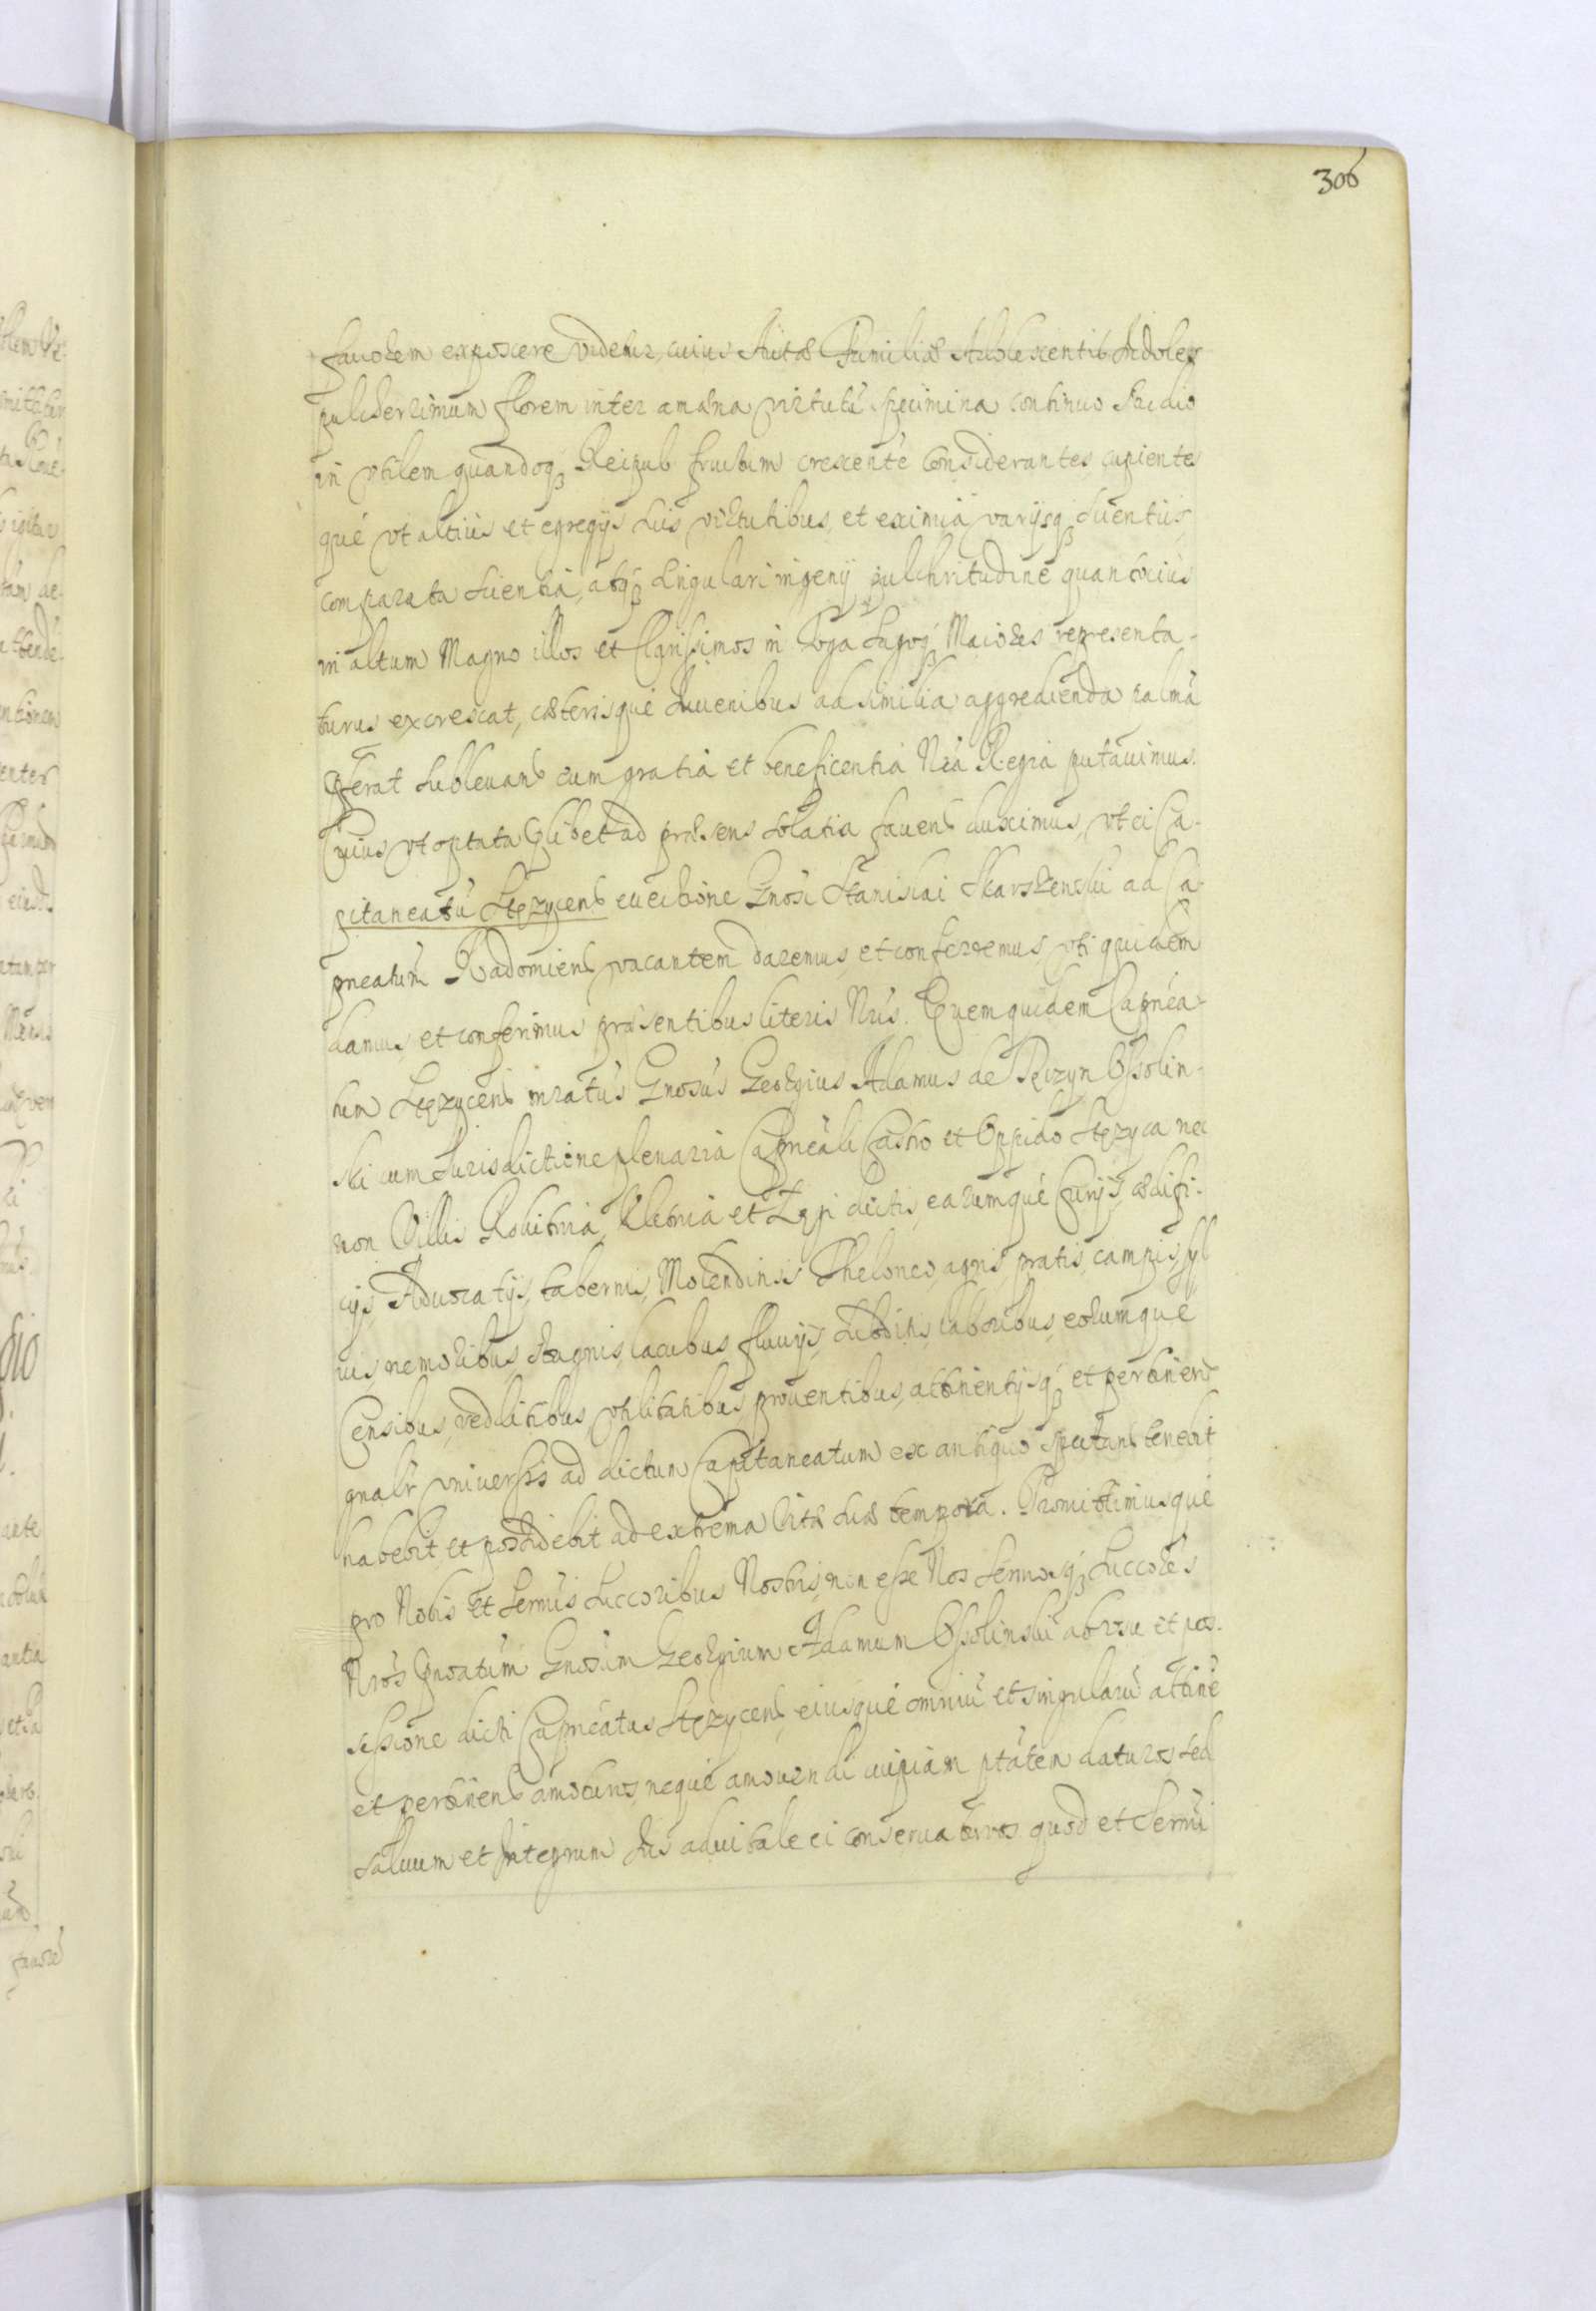 306
fauorem exposcere videtur, cuius Auitæ Familiæ Adolescentis Indoles
pulcherrimum florem inter amæna virtutũ specimina continuo studio
in vtilem quandoq₃ Reipub fructum crescentẽ considerantes, cupientes
qué vt altius et egregijs suis virtutibus, et eximia varijsq₃ scientijs
comparata scientia, atq₃ singulari ingenij pulchritudine quantocius
in altum Magno illos et Clarissimos in Toga Sagoq₃ Maiores representa-
turus excrescat, cæterisqué Iuuenibus ad similia aggredienda palmã
ꝑferat subleuand cum gratia et beneficentia Nrã Regia putauimus.
Cuius vt optata ꝗlibet ad præsens solatia fauend duximus, vt ei Ca-
pitaneatũ Stęzycens euectione Gnosi Stanislai Skarszewski ad Ca-
pneatum Radomiens vacantem daremus, et conferremus vti quidem
damus, et conferimus præsentibus literis Nris. Quem quidem Capnea-
tum Stęzycens mratus Gnosus Georgius Adamus de Tęczyn Ossolin-
ski cum Iurisdictione plenaria Capneali Castro et Oppido Stęzyca nec
non Villis Rokitnia, Kletnia et Lępi dictis, earumqué Curijs, ædifi-
cijs, Aduocatijs, tabernis, Molendinis Theloneo, agris, pratis, campis, syl
uis, nemoribus, stagnis, lacubus fluuijs, subditis, laboribus, eorumqué
Censibus, redditibus, vtilitatibus, prouentibus, attinentijsq₃ et pertinen
gnalr vniuersis ad dictum Capitaneatum ex antiquo spectan tenebit
habebit, et possidebit ad extrema Vitæ suæ tempora. Promittimusqué
pro Nobis et Sermis Succoribus Nostris, non esse Nos Sermosq₃ Succores
Nros pnoatum Gnosum Georgium Adamum Ossolinski ab vsu et pos-
sessione dicti Capneatus Stęzycens, eiusqué omniũ et singularũ attinẽ
et pertinens amoturos, neque amouendi cuipiam ptatem daturos sed
saluum et Integrum Ius aduitale ei conseruaturos quod et Sermi